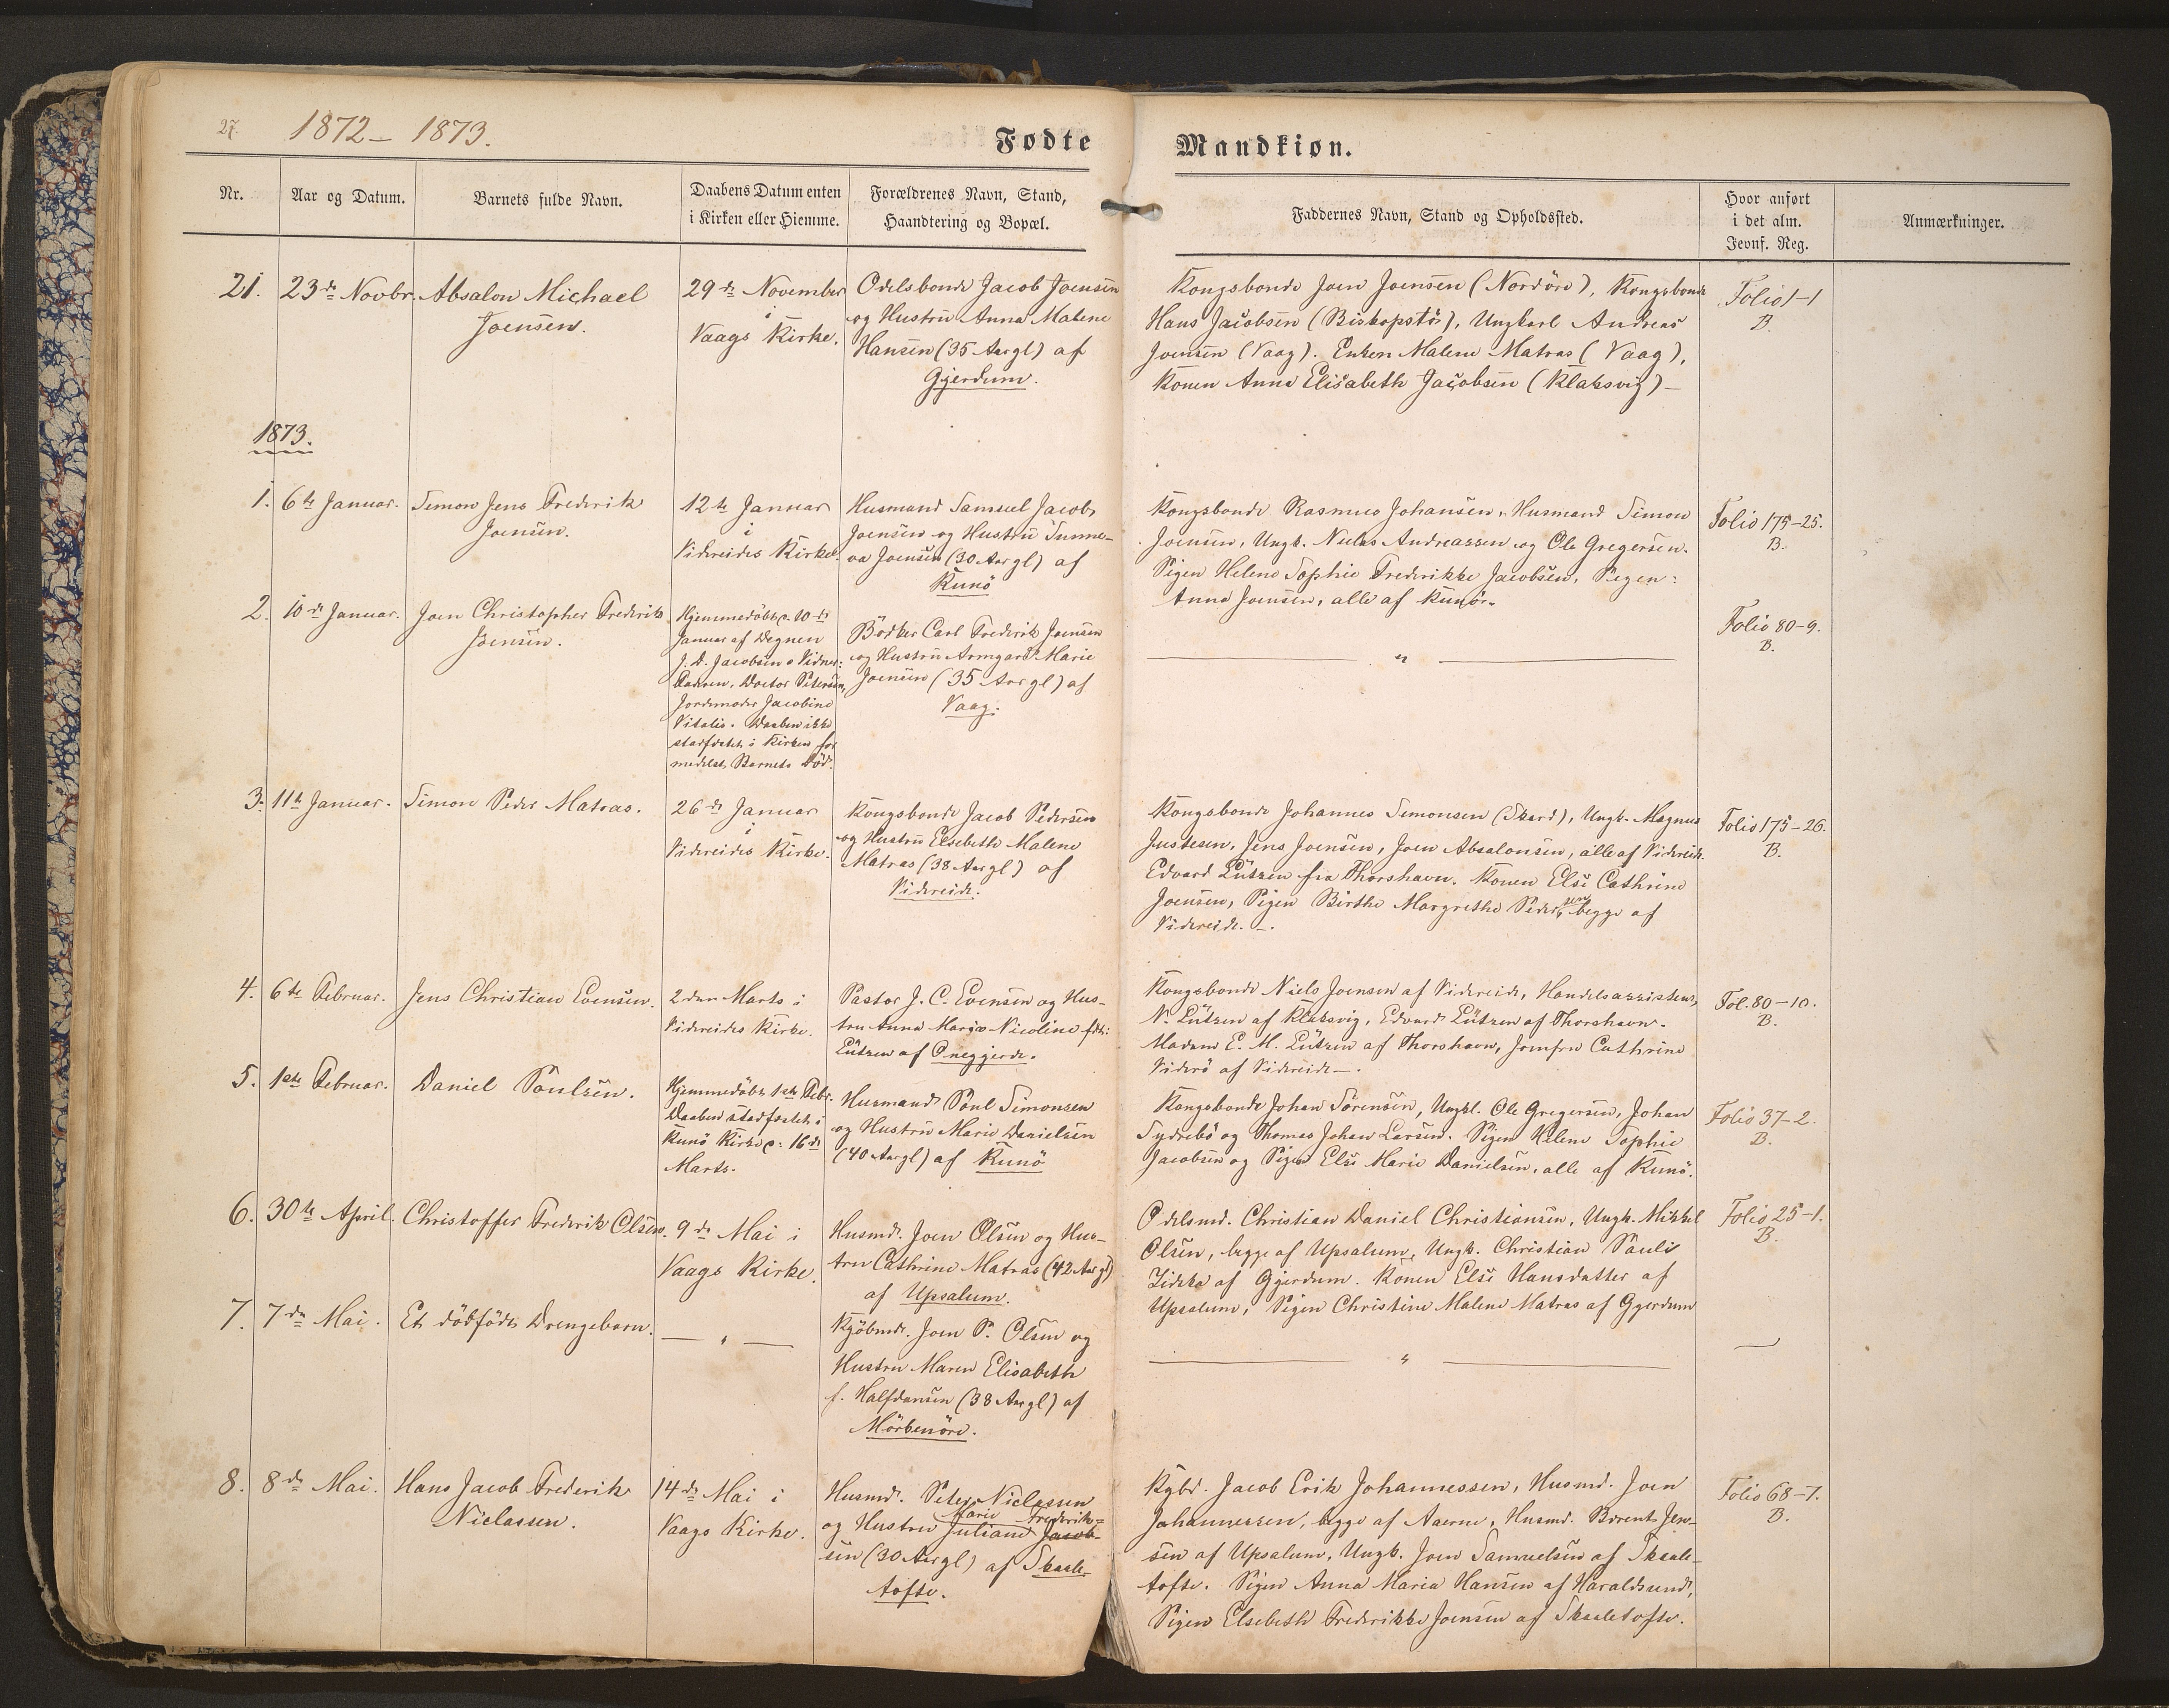 27.
1872 – 1873.
Fødte
Mandkiøn.
Nr.
Aar og Datum.
Barnets fulde Navn.
Daabens Datum enten
i Kirken eller Hiemme.
Forældrenes Navn, Stand,
Haandtering og Bopæl.
Faddernes Navn, Stand og Opholdssted.
Hvor anført
i det alm.
Jevnf. Reg.
Anmærkninger.
21.
23de Novbr.
Absalon Michael
Joensen.
29de November
i
Vaags Kirke.
Odelsbonde Jacob Joensen
og Hustru Anna Malene
Hansen (35 Aar gl) af
Gjerdum.
Kongsbonde Joen Joensen (Nordöre), Kongsbonde
Hans Jacobsen (Biskopstö), Ungkarl Andreas
Joensen (Vaag). Enken Malene Matras (Vaag),
Konen Anna Elisabeth Jacobsen (Klaksvig) –
Folio 1–1
B.
1873.
1.
6te Januar.
Simon Jens Frederik
Joensen.
12te Januar
i
Videreides Kirke.
Husmand Samuel Jacob
Joensen og Hustru Sunne-
va Joensen (30 Aar gl) af
Kunö
Kongsbonde Rasmus Johansen, Husmand Simon
Joensen, Ungk. Niels Andreassen og Ole Gregersen.
Pigen Helene Sophie Frederikke Jacobsen, Pigen:
Anna Joensen, alle af Kunö.
Folio 175–25.
B.
2.
10de Januar.
Joen Christopher Frederik
Joensen.
Hjemmedöbt d. 10de
Januar af Degnen
J. D. Jacobsen. Vidner:
Faderen, Doctor Petersen,
Jordemoder Jacobine
Vitalis. Daaben ikke
stadfæstet i Kirken for-
medelst Barnets Död.
Bödker Carl Frederik Joensen
og Hustru Armgard Marie
Joensen (35 Aar gl) af
Vaag.
— " —
Folio 80–9.
B.
3.
11te Januar.
Simon Peder Matras.
26de Januar
i
Videreides Kirke.
Kongsbonde Jacob Pedersen
og Hustru Elsebeth Malene
Matras (38 Aar gl) af
Videreide.
Kongsbonde Johannes Simonsen (Skard), Ungk. Magnus
Justesen, Jens Joensen, Joen Absalonsen, alle af Videreide.
Edvard Lützen fra Thorshavn. Konen Else Cathrine
Joensen, Pigen Birthe Margrethe Pedersen, begge af
Videreide. –.
Folio 175–26.
B.
4.
6te Februar.
Jens Christian Evensen.
2den Marts i
Videreides Kirke.
Pastor J. C. Evensen og Hus-
tru Anna Marie Nicoline fdt:
Lützen af Oneggjerde.
Kongsbonde Niels Joensen af Videreide, Handelsassistent
N. Lützen af Klaksvig, Edvard Lützen af Thorshavn.
Madam E. M. Lützen af Thorshavn, Jomfru Cathrine
Viderö af Videreide –.
Fol. 80–10.
B.
5.
1ste Februar.
Daniel Poulsen.
Hjemmedöbt 1ste Febr.
Daaben stadfæstet i
Kunö Kirke d: 16de
Marts.
Husmand Poul Simonsen
og Hustru Marie Danielsen
(40 Aar gl) af Kunö
Kongsbonde Johan Sörensen, Ungkl. Ole Gregersen, Johan
Sydrebö og Thomas Johan Larsen. Pigen Helene Sophie
Jacobsen og Pigen Else Marie Danielsen, alle af Kunö.
Folio 37–2.
B.
6.
30te April.
Christoffer Frederik Olsen.
9de Mai i
Vaags Kirke.
Husmd. Joen Olsen og Hus-
tru Cathrine Matras (42 Aar gl)
af Upsalum.
Odelsmd. Christian Daniel Christiansen, Ungk. Mikkel
Olsen, begge af Upsalum, Ungk. Christian Pauli
Zidska af Gjerdum. Konen Else Hansdatter af
Upsalum, Pigen Christine Malene Matras af Gjerdum
Folio 25–1.
B.
7.
7de Mai.
Et dödfödt Drengebarn.
— " —
Kjöbmd. Joen P. Olsen og
Hustru Maren Elisabeth
f. Halfdansen (38 Aar gl) af
Mörkenöre.
— " —
—
8.
8de Mai.
Hans Jacob Frederik
Niclassen.
14de Mai i
Vaags Kirke.
Husmd. Peter Niclassen
Marie Frederik-
og Hustru Juliane Jacob-
sen (30 Aar gl) af Skaale-
tofte.
Kgbd. Jacob Erik Johannessen, Husmd. Joen
Johannessen, begge af Aaerne, Husmd. Berent Jen-
sen af Upsalum, Ungk. Joen Samuelsen af Skaale-
tofte. Pigen Anna Maria Hansen af Haraldsund,
Pigen Elsebeth Frederikke Joensen af Skaaletofte.
Folio 68–7.
B.